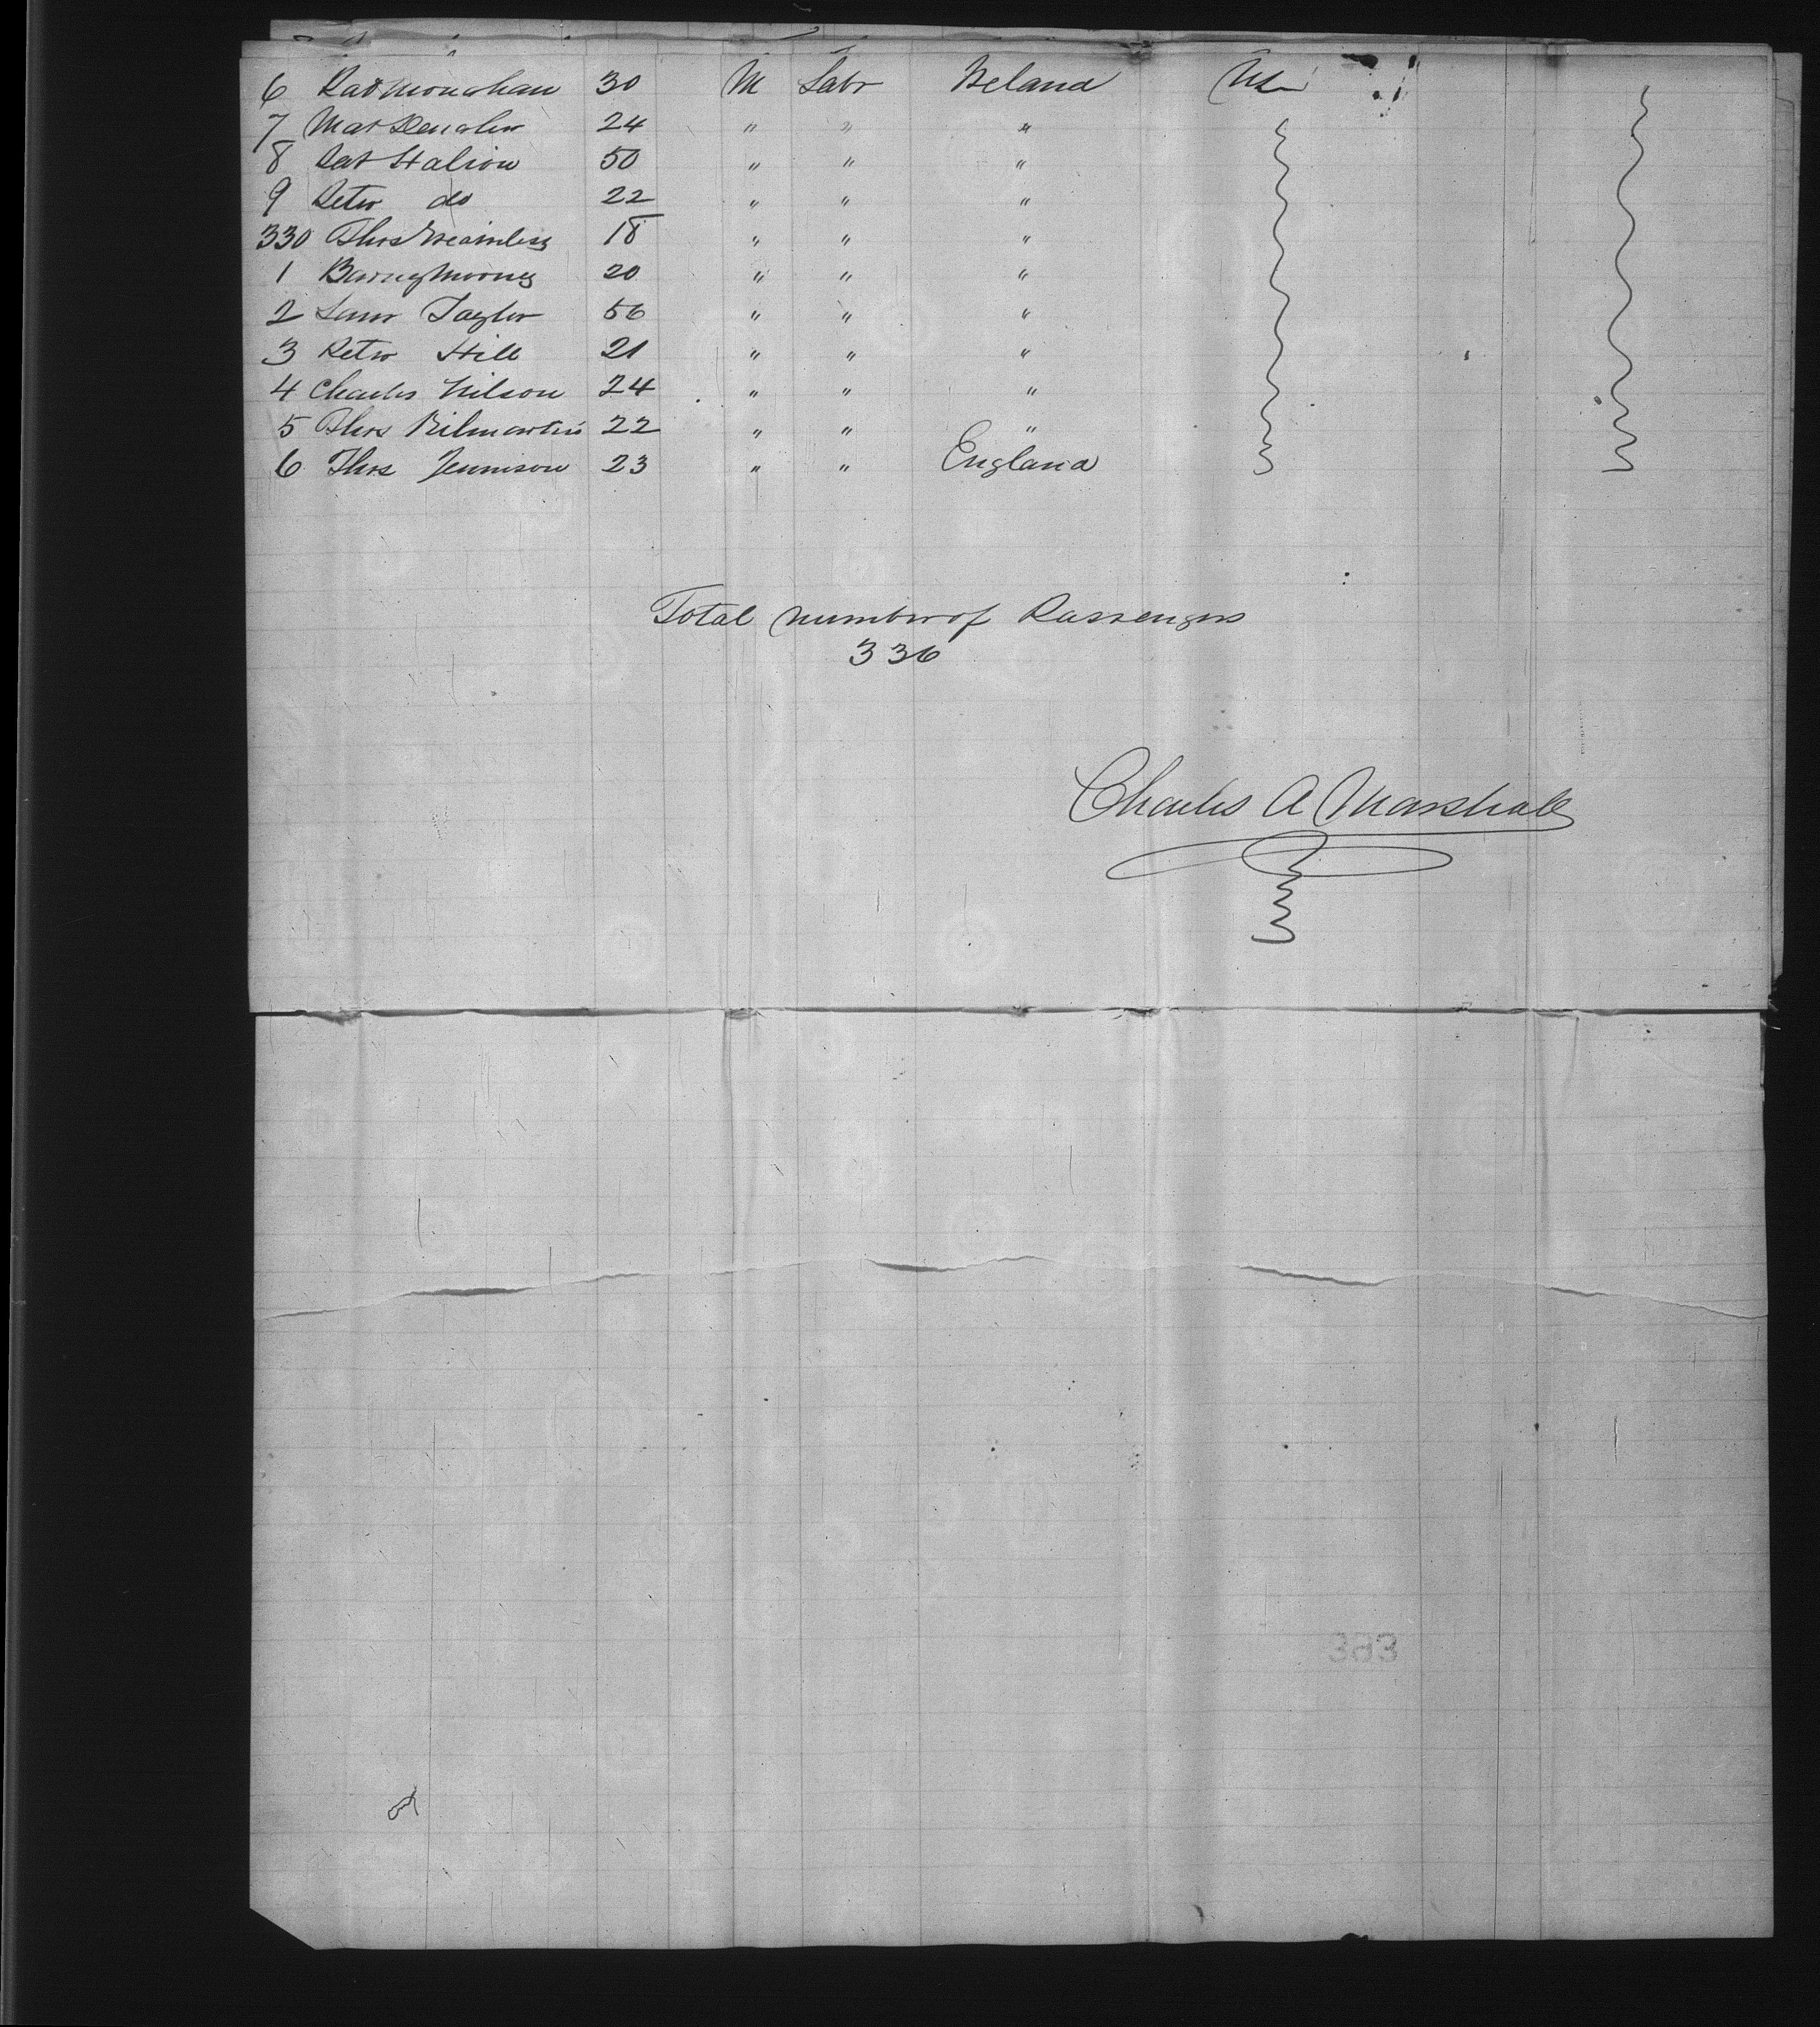 6 Pat Monahan 30 M Labr Ireland
7 Mat 24 " " "
8 Pat Halion 50 " " "
9 Peter do 22 " " "
330 Thos 18 " " "
1 Barney Mooney 20 " " "
2 Taylor 56 " " "
3 Peter Hill 21 " " "
4 Charles Nilson 24 " " "
5 Thos Kilmartin 22 " " "
6 Thos Jennison 23 " " England
Total number of Passengers
336
Charles A Marshall